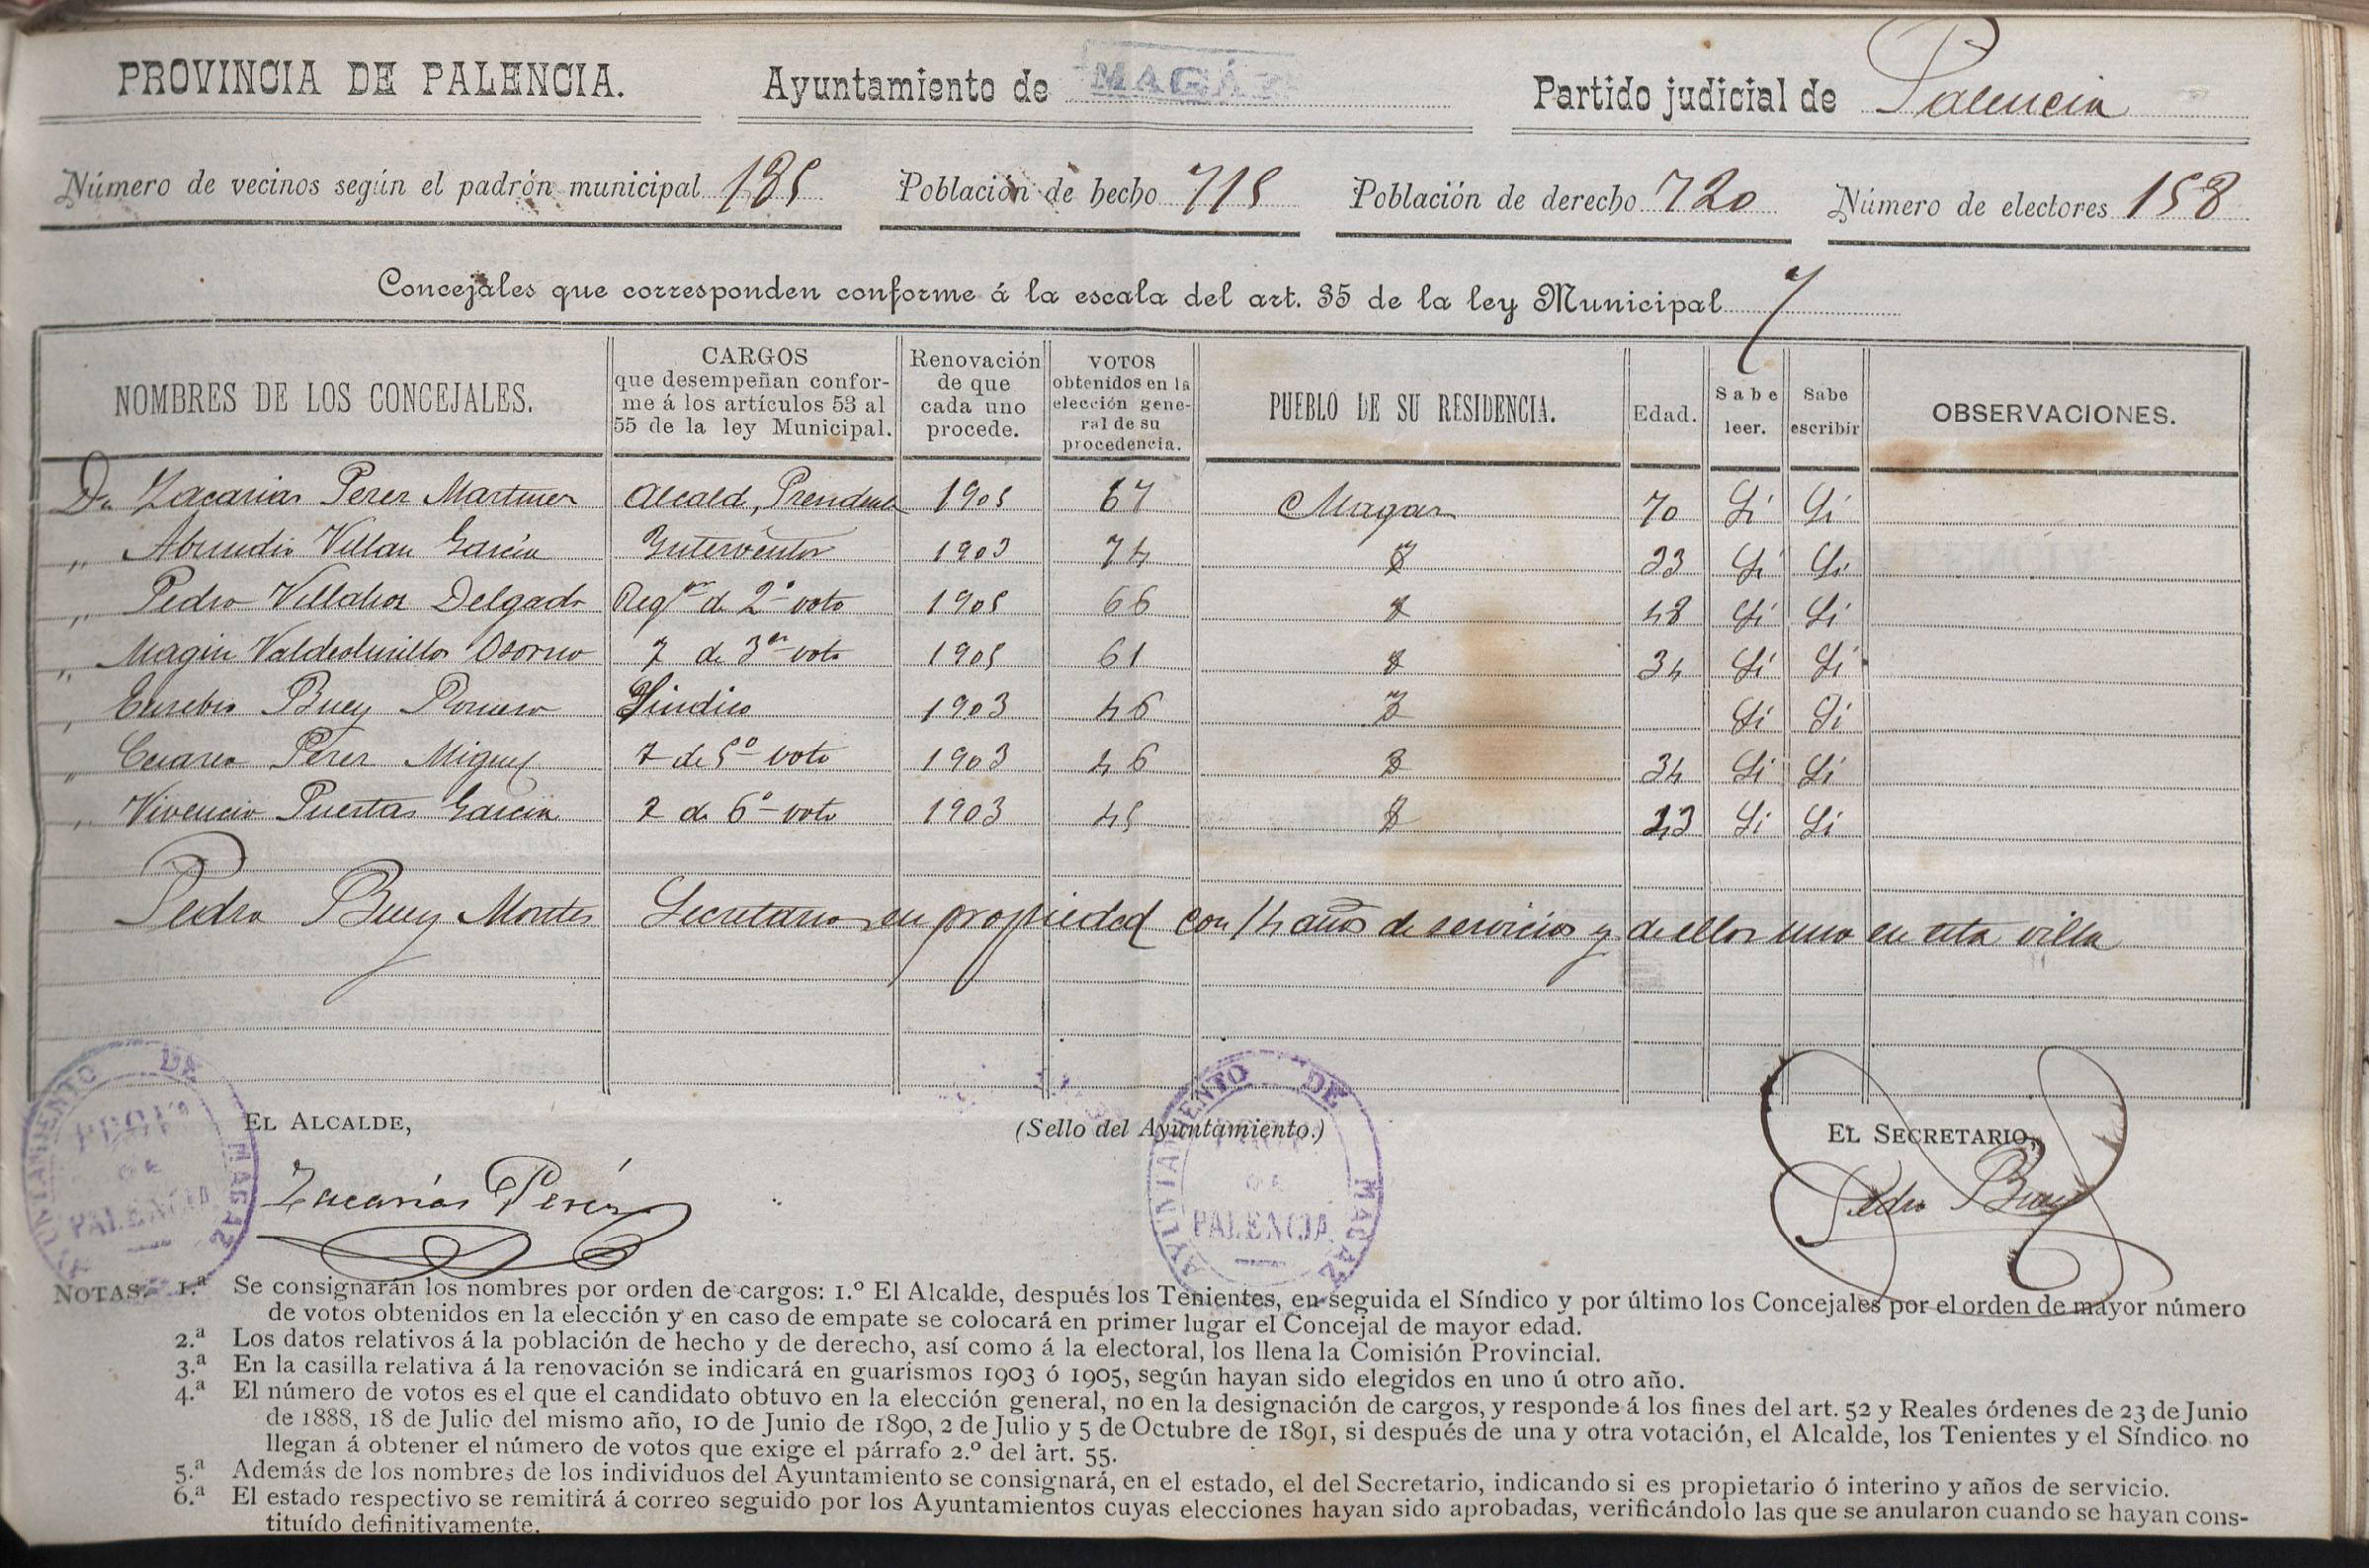 PROVINCIA DE PALENCIA. Ayuntamiento de MAGÁZ Partido judicial de Palencia
Número de vecinos según el padrón municipal 185 Población de hecho 715 Población de derecho 720 Número de electores 158
Concejales que corresponden conforme á la escala del art. 35 de la ley Municipal 7
NOMBRES DE LOS CONCEJALES.
CARGOS
que desempeñan confor-
me á los artículos 53 al
55 de la ley Municipal.
Renovación
de que
cada uno
procede.
VOTOS
obtenidos en la
elección gene-
ral de su
procedencia.
PUEBLO DE SU RESIDENCIA.
Edad.
Sabe
leer.
Sabe
escribir
OBSERVACIONES.
Dn Zacarias Perez Martinez Alcald, Presidente 1905 67 Magaz 70 Si Si
" Abundio Villan Garcia Interventor 1903 74 33 Si Si
" Pedro Villahoz Delgado Regor de 2º voto 1905 66 48 Si Si
" Magin Valdeolmillos Osorno de 3er voto 1905 61 34 Si Si
" Eusebio Buey Romero Sindico 1903 46 Si Si
" Cesareo Perez Miguel de 5º voto 1903 46 34 Si Si
" Vivencio Puertas Garcia de 6º voto 1903 45 Si Si
Pedro Buey Montes Secretario en propiedad con 14 años de servicios y de ellos uno en esta villa
EL ALCALDE, (Sello del Ayuntamiento.) EL SECRETARIO,
Zacarías Peréz Pedro Buey
AYUNTAMIENTO DE MAGAZ
PROVª
DE
PALENCIA
AYUNTAMIENTO DE MAGAZ
PROVª
DE
PALENCIA
NOTAS. 1.ª Se consignarán los nombres por orden de cargos: 1.º El Alcalde, después los Tenientes, en seguida el Síndico y por último los Concejales por el orden de mayor número
de votos obtenidos en la elección y en caso de empate se colocará en primer lugar el Concejal de mayor edad.
2.ª Los datos relativos á la población de hecho y de derecho, así como á la electoral, los llena la Comisión Provincial.
3.ª En la casilla relativa á la renovación se indicará en guarismos 1903 ó 1905, según hayan sido elegidos en uno ú otro año.
4.ª El número de votos es el que el candidato obtuvo en la elección general, no en la designación de cargos, y responde á los fines del art. 52 y Reales órdenes de 23 de Junio
de 1888, 18 de Julio del mismo año, 10 de Junio de 1890, 2 de Julio y 5 de Octubre de 1891, si después de una y otra votación, el Alcalde, los Tenientes y el Síndico no
llegan á obtener el número de votos que exige el párrafo 2.º del art. 55.
5.ª Además de los nombres de los individuos del Ayuntamiento se consignará, en el estado, el del Secretario, indicando si es propietario ó interino y años de servicio.
6.ª El estado respectivo se remitirá á correo seguido por los Ayuntamientos cuyas elecciones hayan sido aprobadas, verificándolo las que se anularon cuando se hayan cons-
tituído definitivamente.